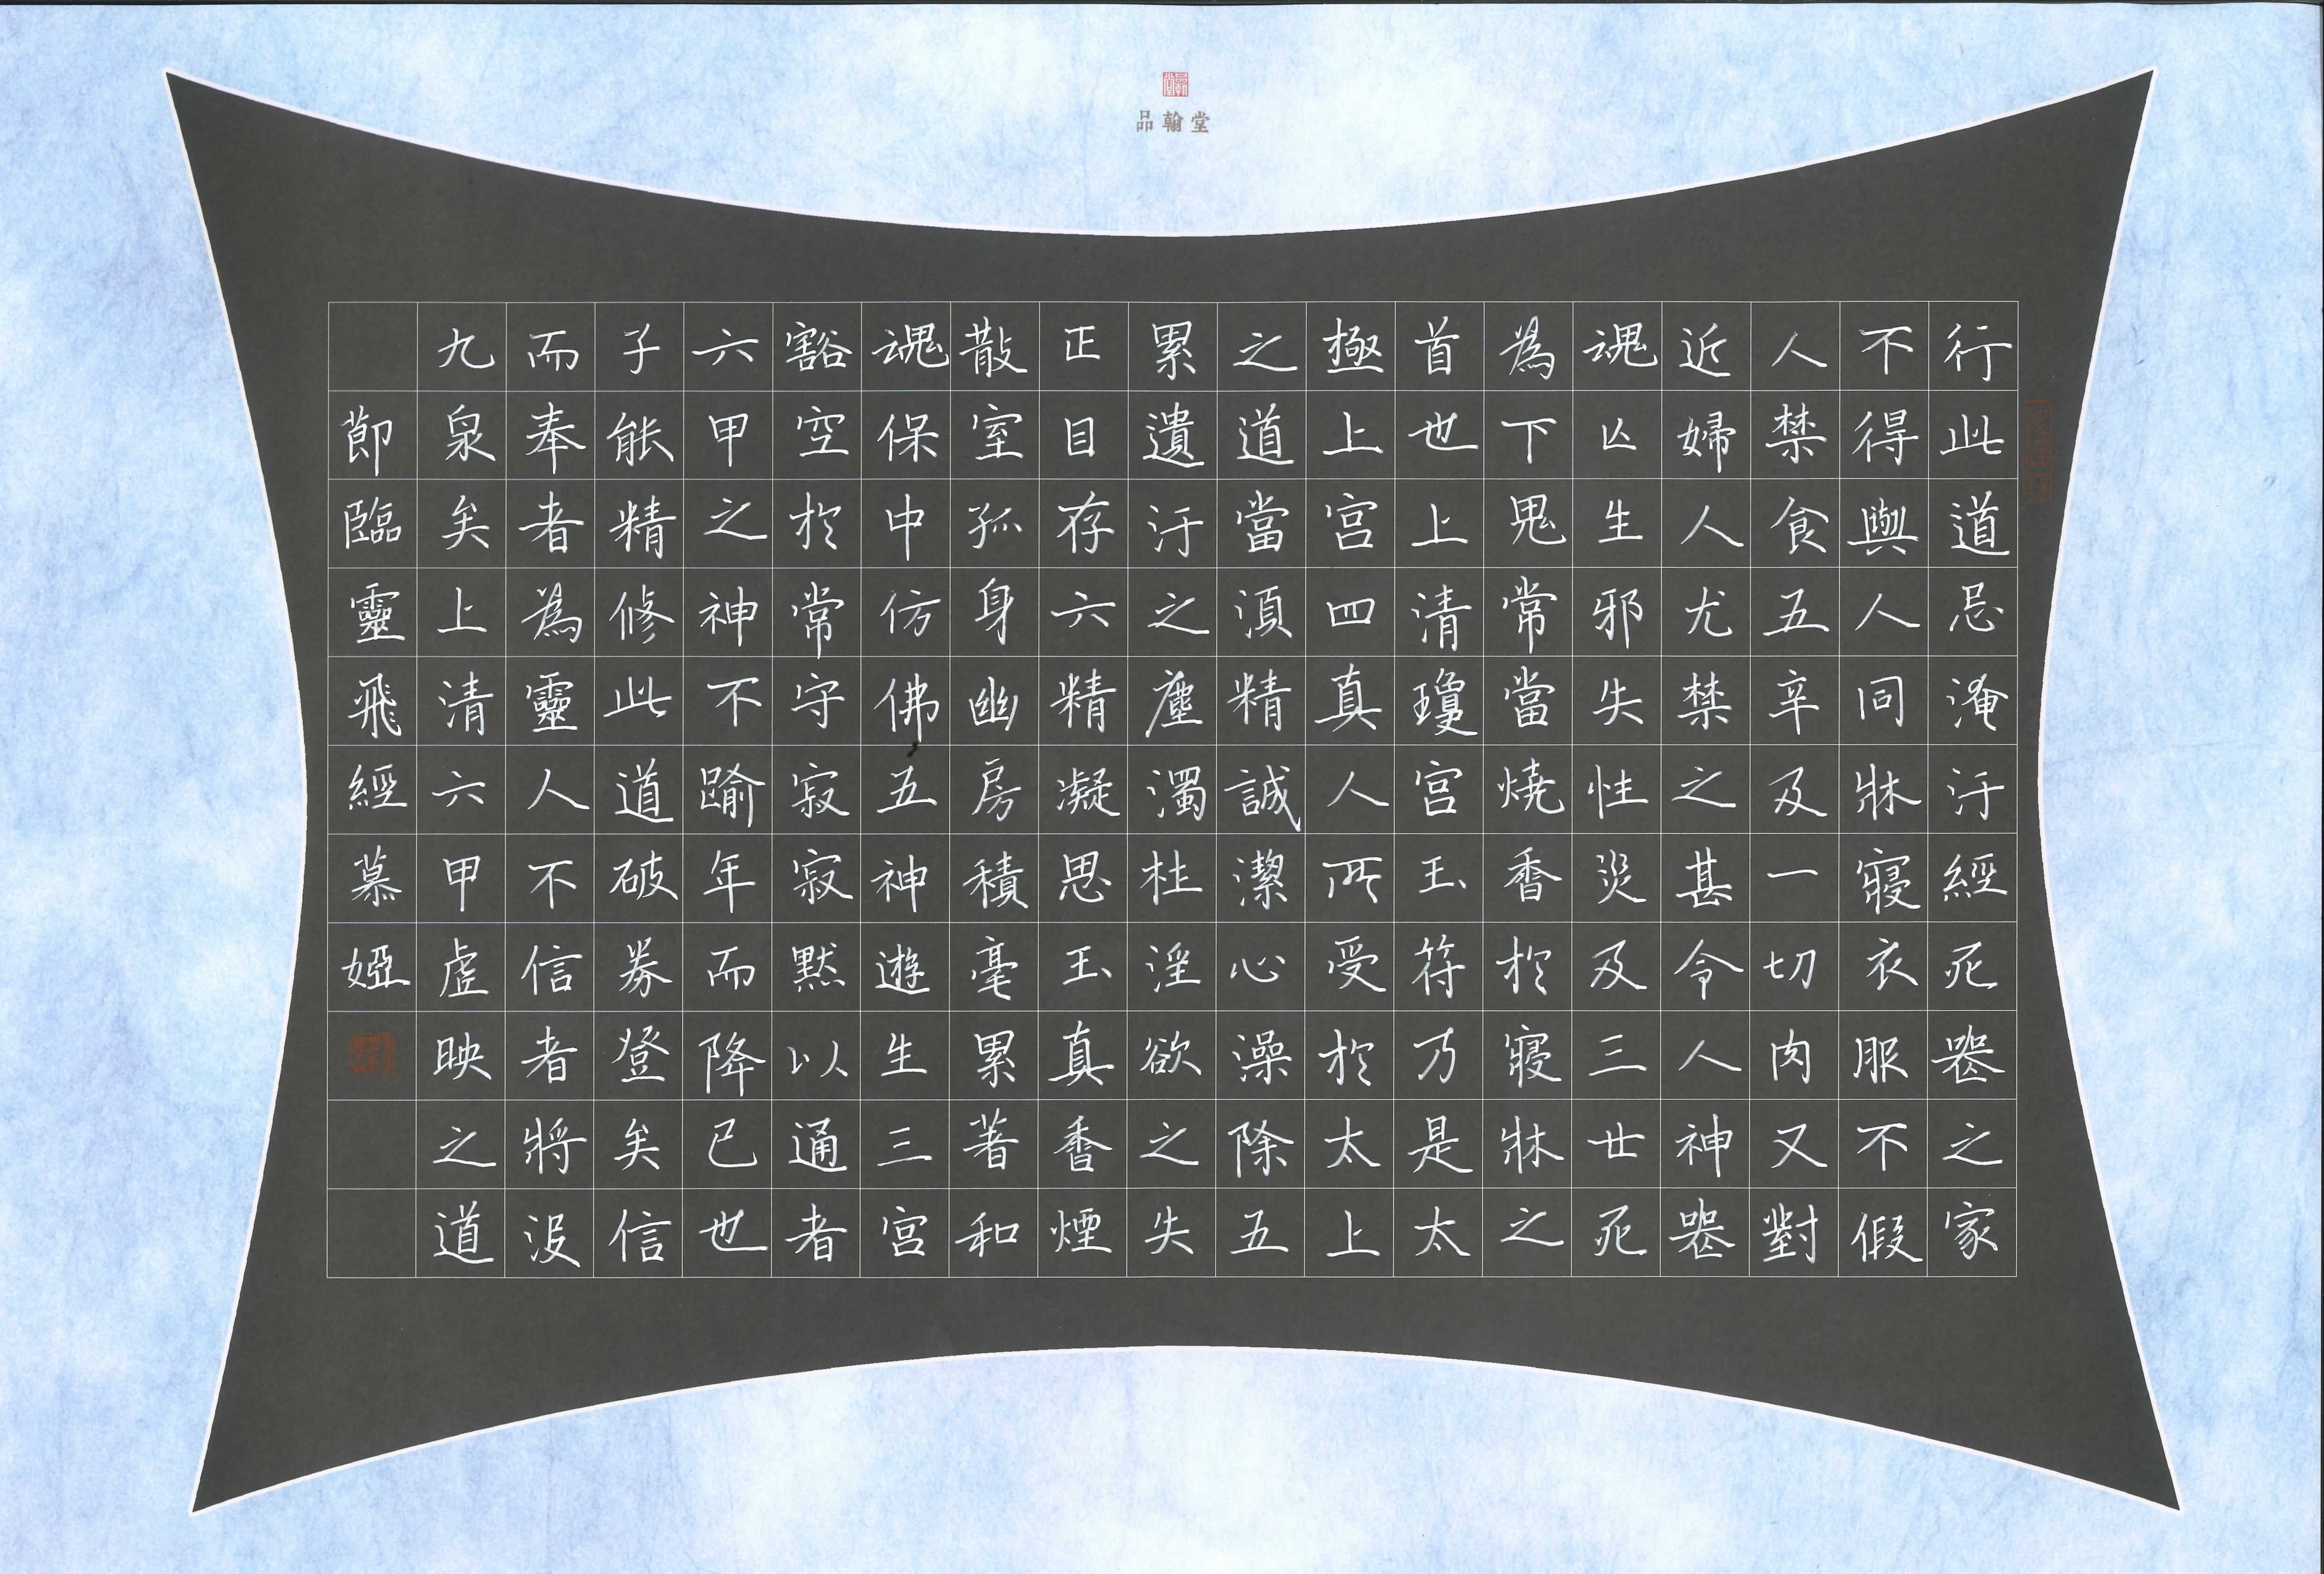 品翰堂
行此道忌淹汙經死喪之家
不得與人同牀寢衣服不假
人禁食五辛及一切肉又對
近婦人尤禁之甚令人神喪
魂亡生邪失性災及三世死
為下鬼常當燒香於寢牀之
首也上清瓊宮玉符乃是太
極上宮四真人所受於太上
之道當須精誠潔心澡除五
累遺汙塵之濁杜淫欲之失
正目存六精凝思玉真香煙
散室孤身幽房積毫累著和
魂保中仿佛五神遊生三宮
豁空於常守寂寂默以通者
六甲之神不踰年而降已也
子能精修此道破券登矣信
而奉者為靈人不信者將沒
九泉矣上清六甲虛映之道
節臨靈飛經慕婭